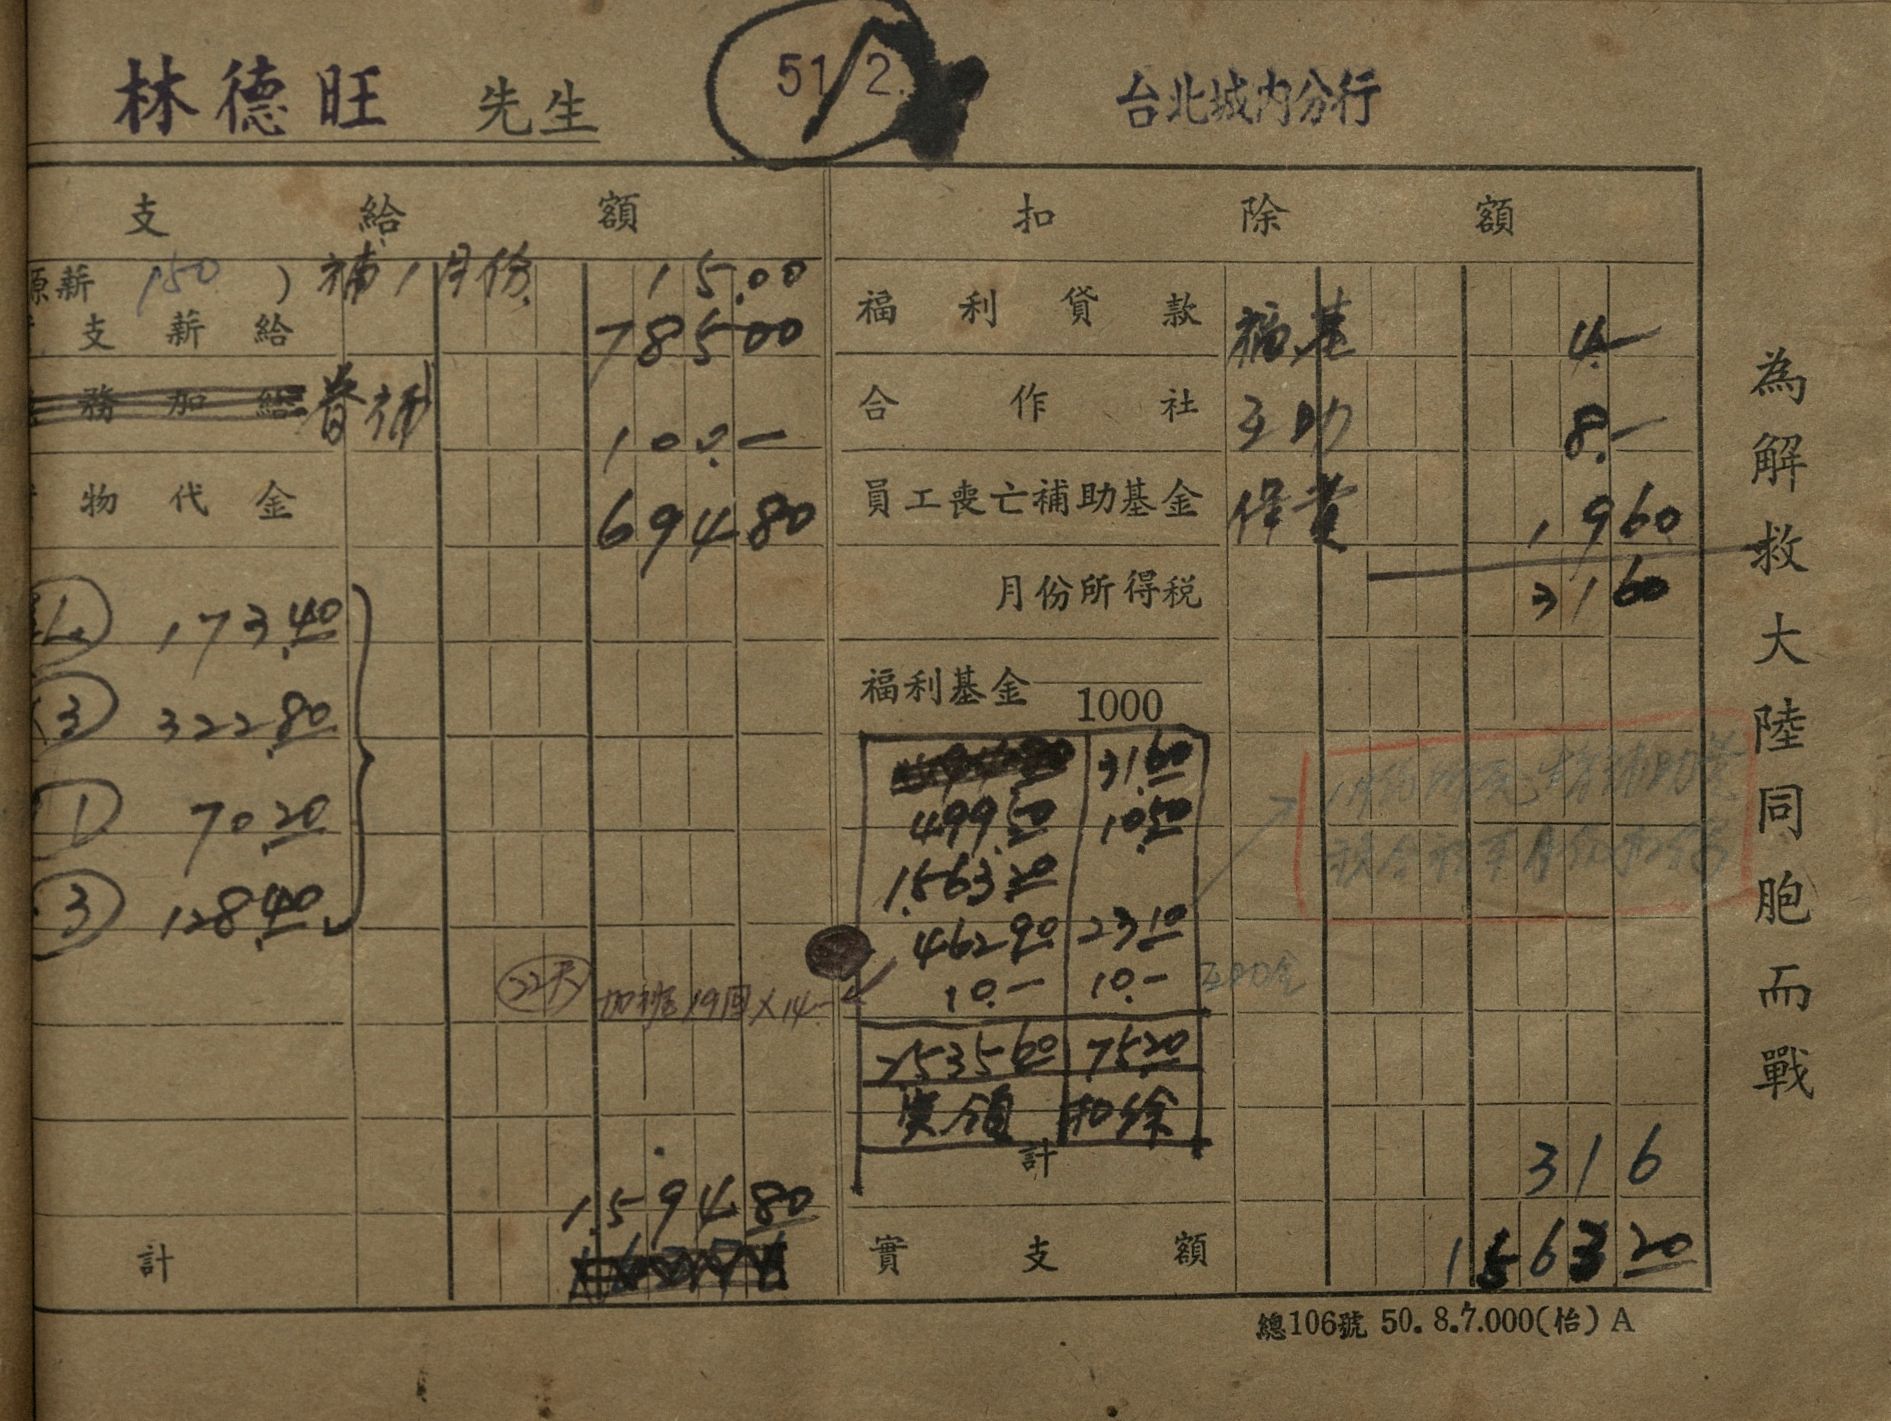 林德旺 先生
51/2.
台北城内分行
支給額
扣除額
原薪 150 ) 補1月份 15.00
支薪給 785 00
務加給 眷補 100.—
物代金 694 80
173.40
3 322.80
1 70.20
3 128.40
22天 加班19回×14—
1.594 80
計
福利貸款 福基 4.—
合作社 互助 8.—
員工喪亡補助基金 保費 19 60
月份所得税 31 60
福利基金 1000
31 60
499.50 10.50
1.563 20
462 90 23 10
10.— 10.— 互助金
2535 60 75.20
実領 扣除
計 31 6
實支額 1563 20
為解救大陸同胞而戰
總106號 50.8.7.000(怡)A